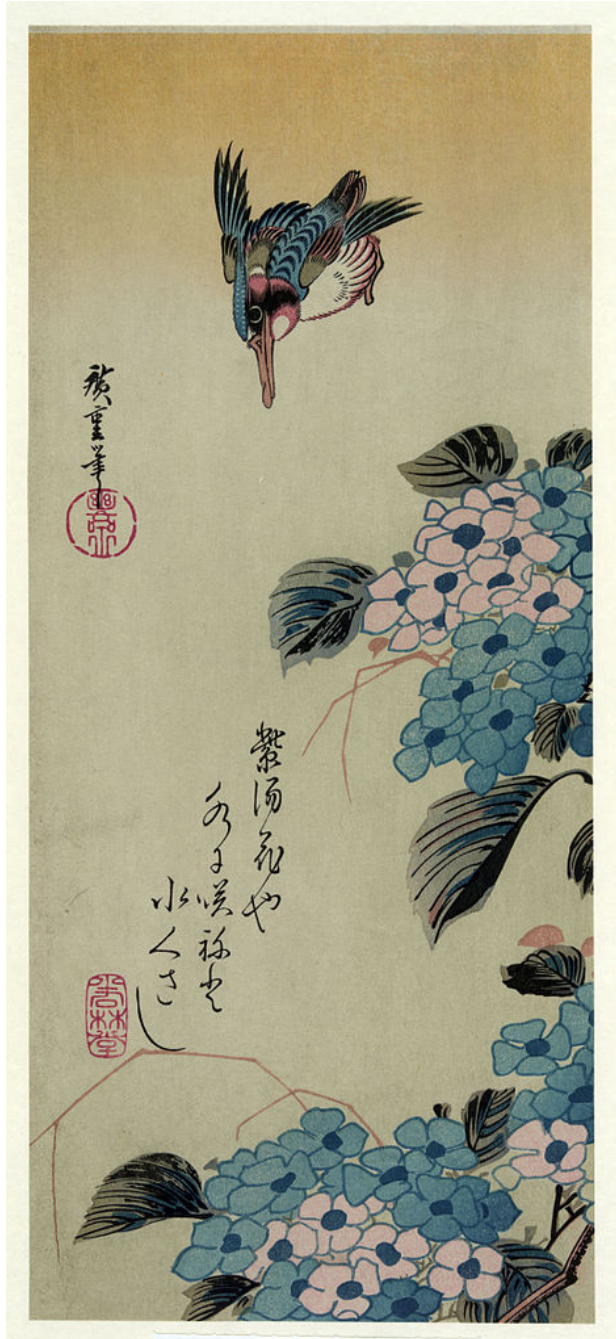 廣重筆
幽斎
紫陽花や
水に咲ねと
水くさし
若林堂